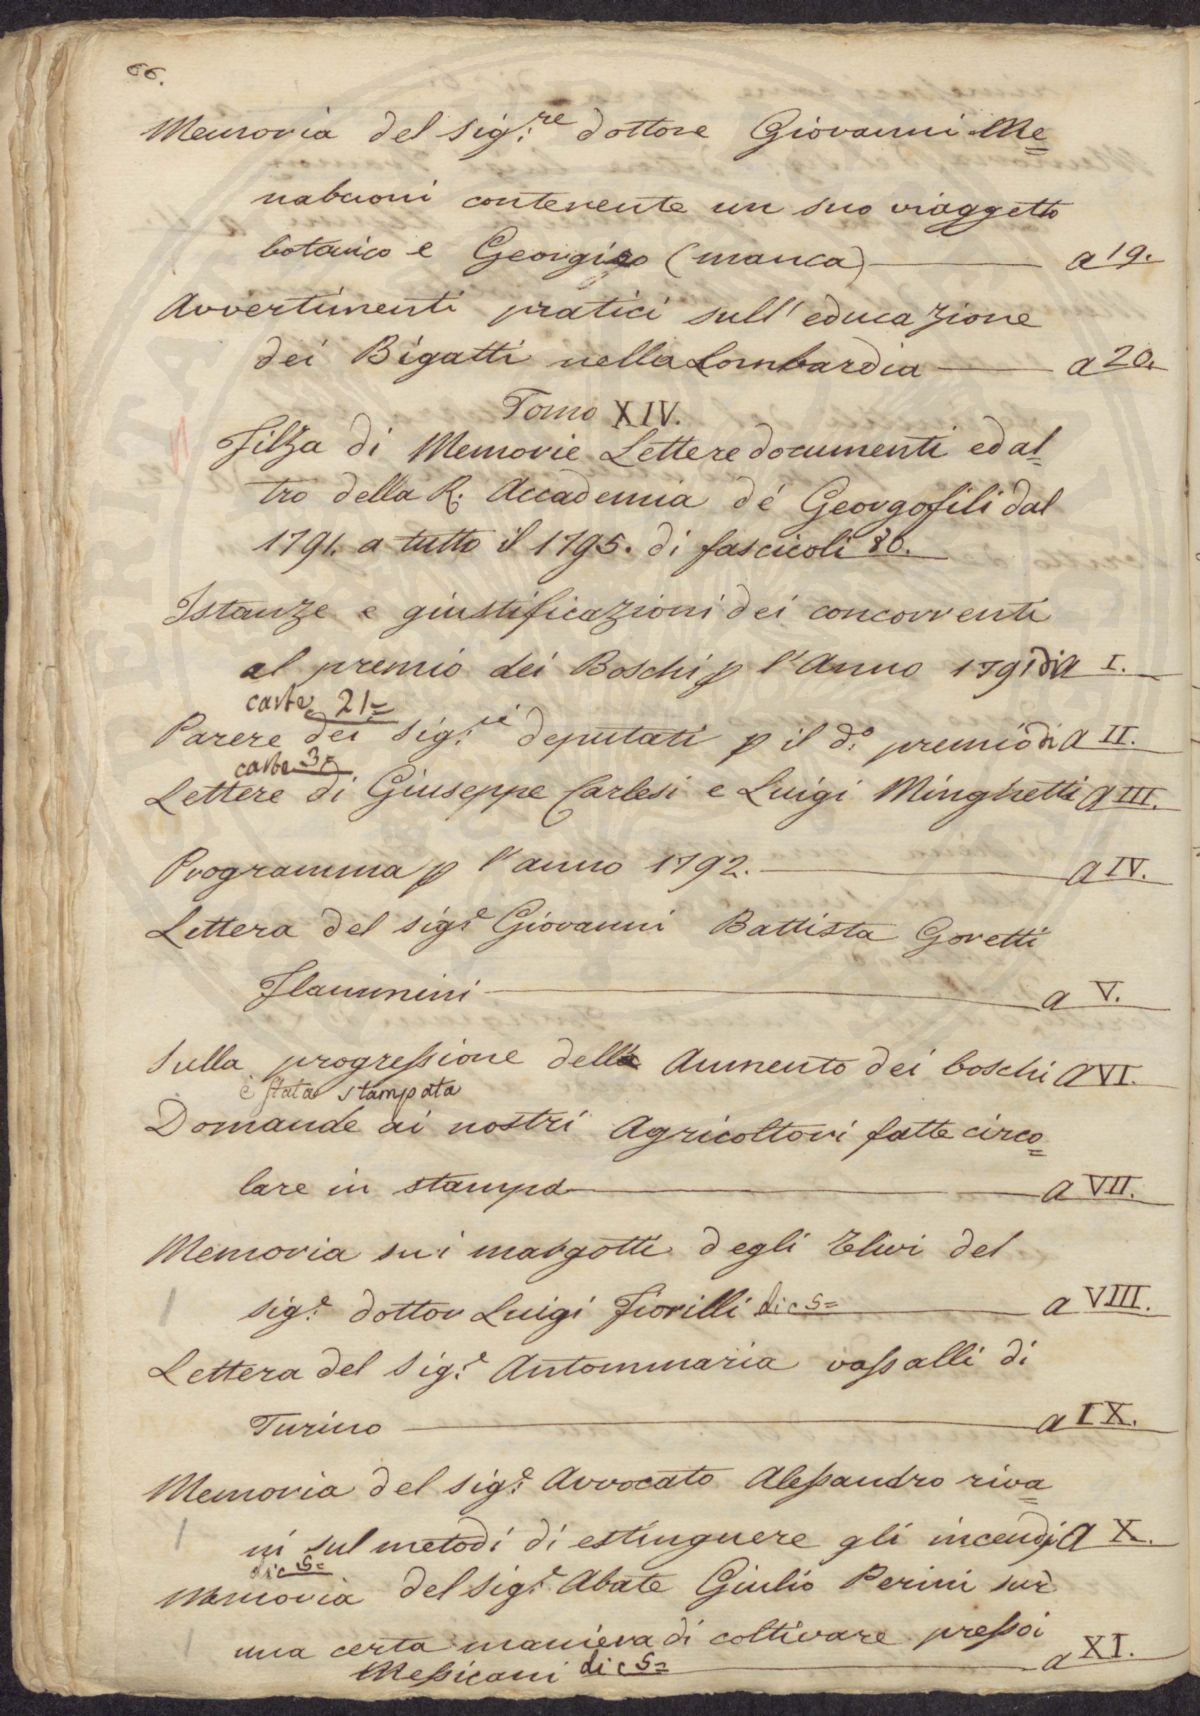 66.
Memoria del sig:re dottore Giovanni Me=
nabuoni contenente un suo viaggetto
botanico e Georgico (manca) a 19.
Avvertimenti pratici sull'educazione
dei Bigatti nella Lombardia a 20.
Tomo XIV.
Filza di Memorie Lettere documenti ed al=
tro della R. Accademia de' Georgofili dal
1791. a tutto il 1795. di fascicoli 80.
Istanze e giustificazioni dei concorrenti
al premio dei Boschi p l'Anno 1791 di a I.
carte 21=
Parere dei sig:ri deputati p il d:o premio di a II.
carte 35
Lettere di Giuseppe Carlesi e Luigi Minghetti a III.
Programma p l'anno 1792. a IV.
Lettera del sig:e Giovanni Battista Goretti
Flamminii a V.
Sulla progressione della Aumento dei boschi a VI.
è stata stampata
Domande ai nostri Agricoltori fatte circo=
lare in stampa a VII.
Memoria sui margotti degli Ulivi del
sig:e dottor Luigi Fiorilli di c 5= a VIII.
Lettera del Sig:e Antommaria vassalli di
Turino a IX.
Memoria del sig:e Avvocato Alessandro riva=
ni sul metodi di estinguere gli incendj a X.
di c 5=
Memoria del Sig:e Abate Giulio Perini sur
una certa maniera di coltivare presso i
Messicani di c 5= a XI.